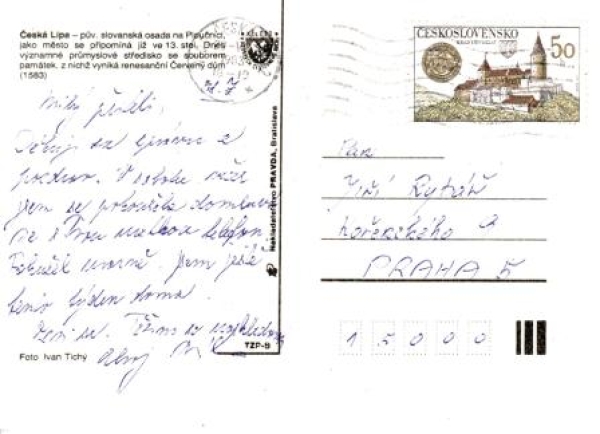 Česká Lípa – pův. slovanská osada na Ploučnici,
jako město se připomíná již ve 13. stol. Dnes
významné průmyslové středisko se souborem
památek, z nichž vyniká renesanční Červený dům
(1583)
Milý příteli,
Děkuji za zprávu a
pozdrav. V sobotu večer
jsem se pokoušela domluvit
se s Tvou matkou telefon.
Jsem ještě
tento týden doma.
Těším se
Ahoj
Foto Ivan Tichý
TZP-B
Nakladatelství PRAVDA, Bratislava
ČESKOSLOVENSKO
50
Pan
Jiří Rybář
Kořenského 9
PRAHA 5
15000